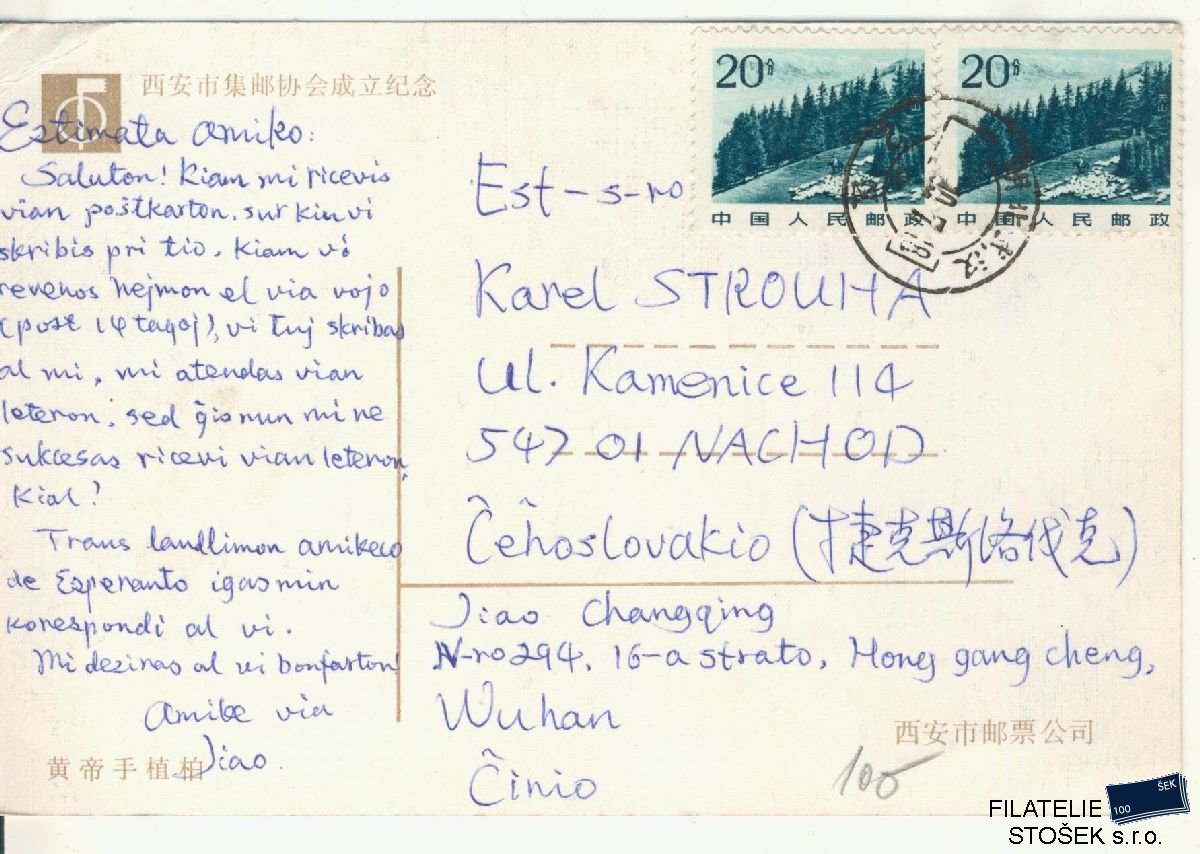 西安市集邮协会成立纪念
Estimata amiko:
Saluton! Kiam mi ricevis
vian poŝtkarton, sur kiu vi
skribis pri tio. Kiam vi
revenos hejmon el via vojo
(post 14 tagoj), vi tuj skribas
al mi, mi atendas vian
leteron, sed ĝis nun mi ne
sukcesas ricevi vian leteron,
Kial?
Trans landlimon amikeco
de Esperanto igas min
korespondi al vi.
Mi deziras al vi bonfarton!
Amike via
Jiao
黄帝手植柏
20分
中国人民邮政
20分
中国人民邮政
湖北武汉
Est-s-ro
Karel STROUHA
ul. Kamenice 114
547 01 NACHOD
Ĉeĥoslovakio (捷克斯洛伐克)
Jiao Changqing
N-ro 294, 16-a strato, Hong gang cheng,
Wuhan
Ĉinio
西安市邮票公司
100
FILATELIE
STOŠEK s.r.o.
100 ŠEK